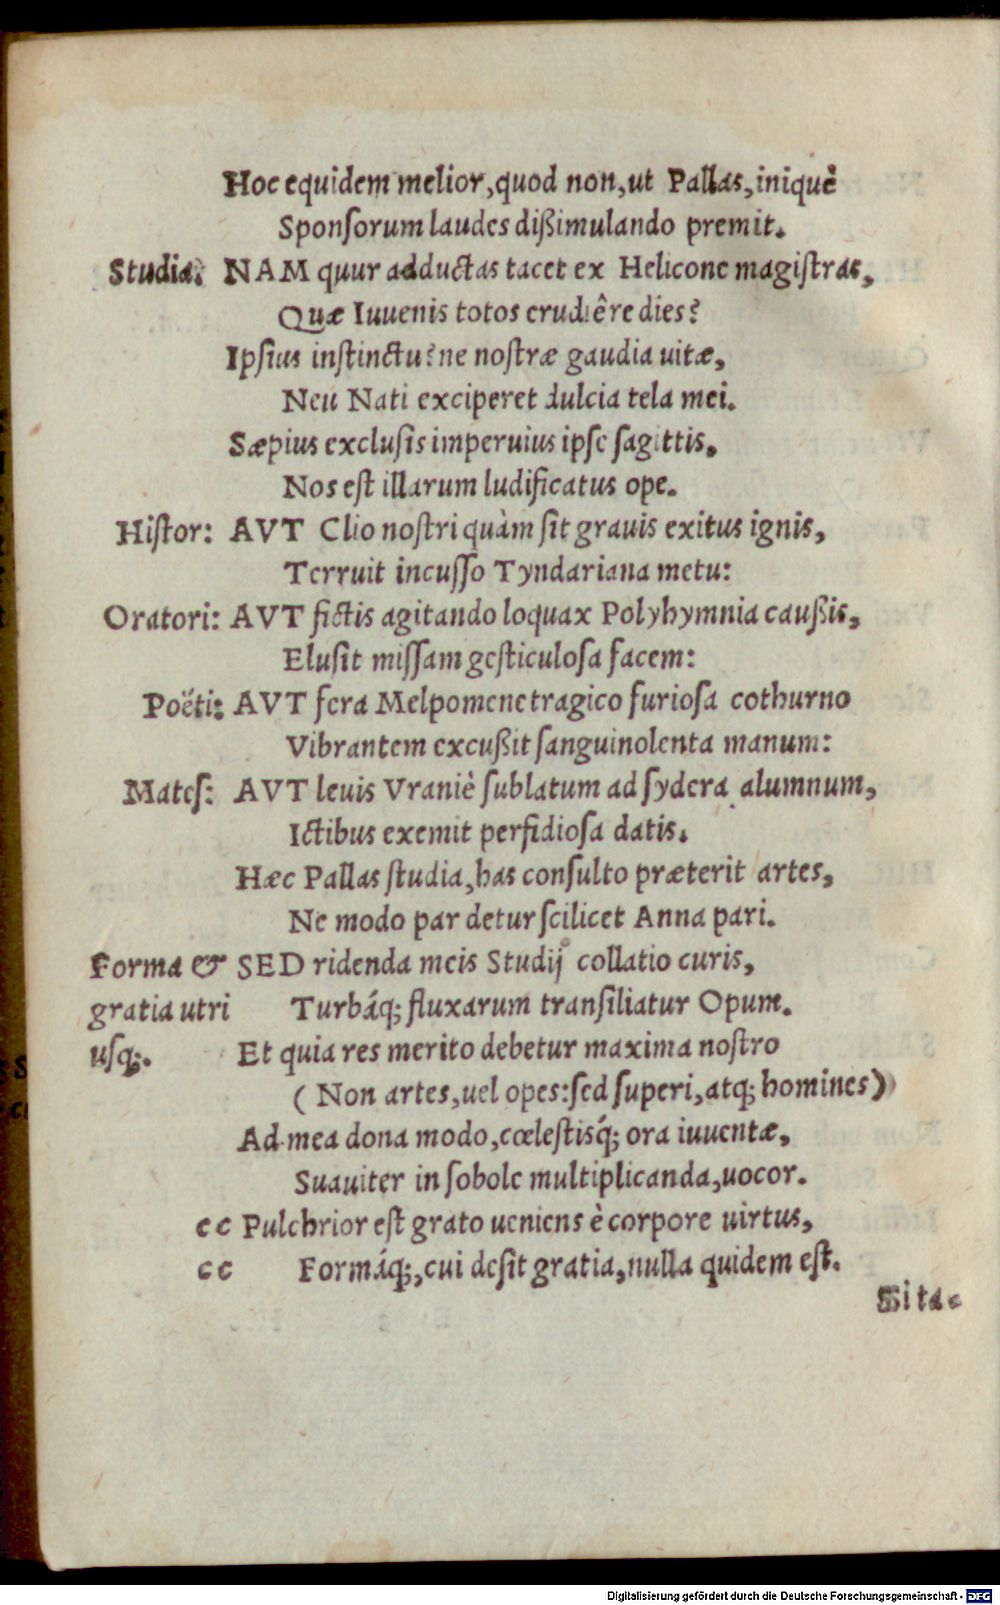 Hoc equidem melior, quod non, ut Pallas, iniquè
Sponsorum laudes dißimulando premit.
Studia: NAM quur adductas tacet ex Helicone magistras,
Quæ Iuuenis totos erudiêre dies?
Ipsius instinctu? ne nostræ gaudia uitæ,
Neu Nati exciperet dulcia tela mei.
Sæpius exclusis imperuius ipse sagittis.
Nos est illarum ludificatus ope.
Histor: AVT Clio nostri quàm sit grauis exitus ignis,
Terruit incusso Tyndariana metu:
Oratori: AVT fictis agitando loquax Polyhymnia caußis,
Elusit missam gesticulosa facem:
Poëti: AVT fera Melpomene tragico furiosa cothurno
Vibrantem excußit sanguinolenta manum:
Mates: AVT leuis Vraniè sublatum ad sydera alumnum,
Ictibus exemit perfidiosa datis.
Hæc Pallas studia, has consulto præterit artes,
Ne modo par detur scilicet Anna pari.
Forma & SED ridenda meis Studij collatio curis,
gratia utri Turbáq; fluxarum transiliatur Opum.
usq;. Et quia res merito debetur maxima nostro
(Non artes, uel opes: sed superi, atq; homines)
Ad mea dona modo, cœlestisq́; ora iuuentæ,
Suauiter in sobole multiplicanda, uocor.
cc Pulchrior est grato ueniens è corpore uirtus,
cc Formáq;, cui desit gratia, nulla quidem est.
Sita-
Digitalisierung gefördert durch die Deutsche Forschungsgemeinschaft - DFG